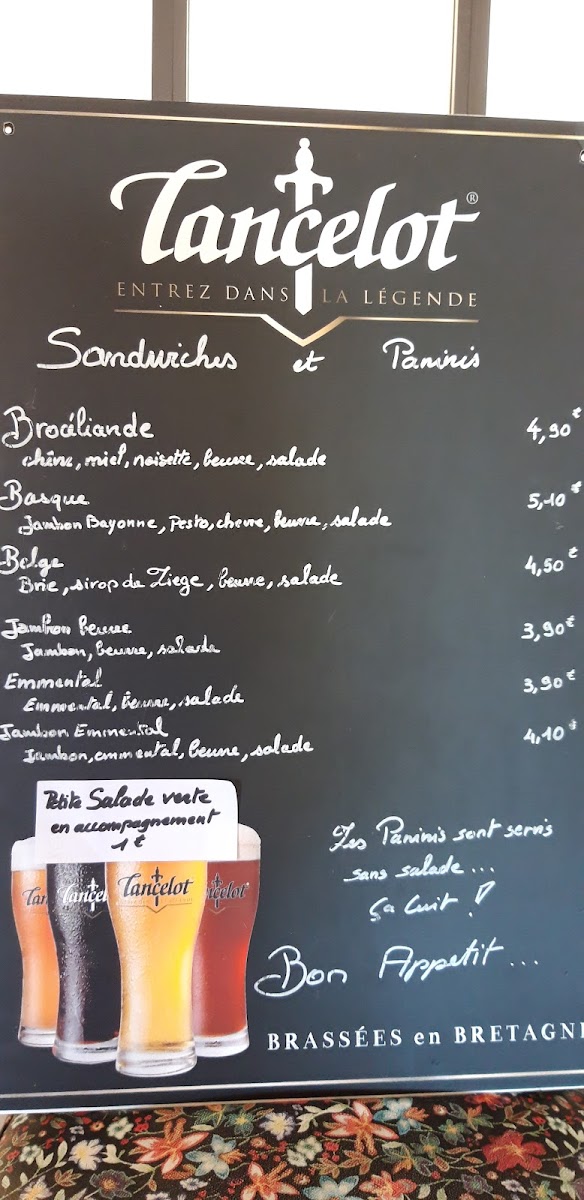 Lancelot®
ENTREZ DANS LA LÉGENDE
Sandwiches et Paninis
Brocéliande 4,90€
chèvre, miel, noisette, beurre, salade
Basque 5,10€
Jambon Bayonne, Pesto, chevre, beurre, salade
Belge 4,50€
Brie, sirop de Liege, beurre, salade
Jambon beurre 3,90€
Jambon, beurre, salade
Emmental 3,90€
Emmental, beurre, salade
Jambon Emmental 4,10€
Jambon, emmental, beurre, salade
Petite Salade verte
en accompagnement
1€
Les Paninis sont servis
sans salade...
ça cuit !
Bon Appetit...
Lancelot
BRASSÉES en BRETAGNE